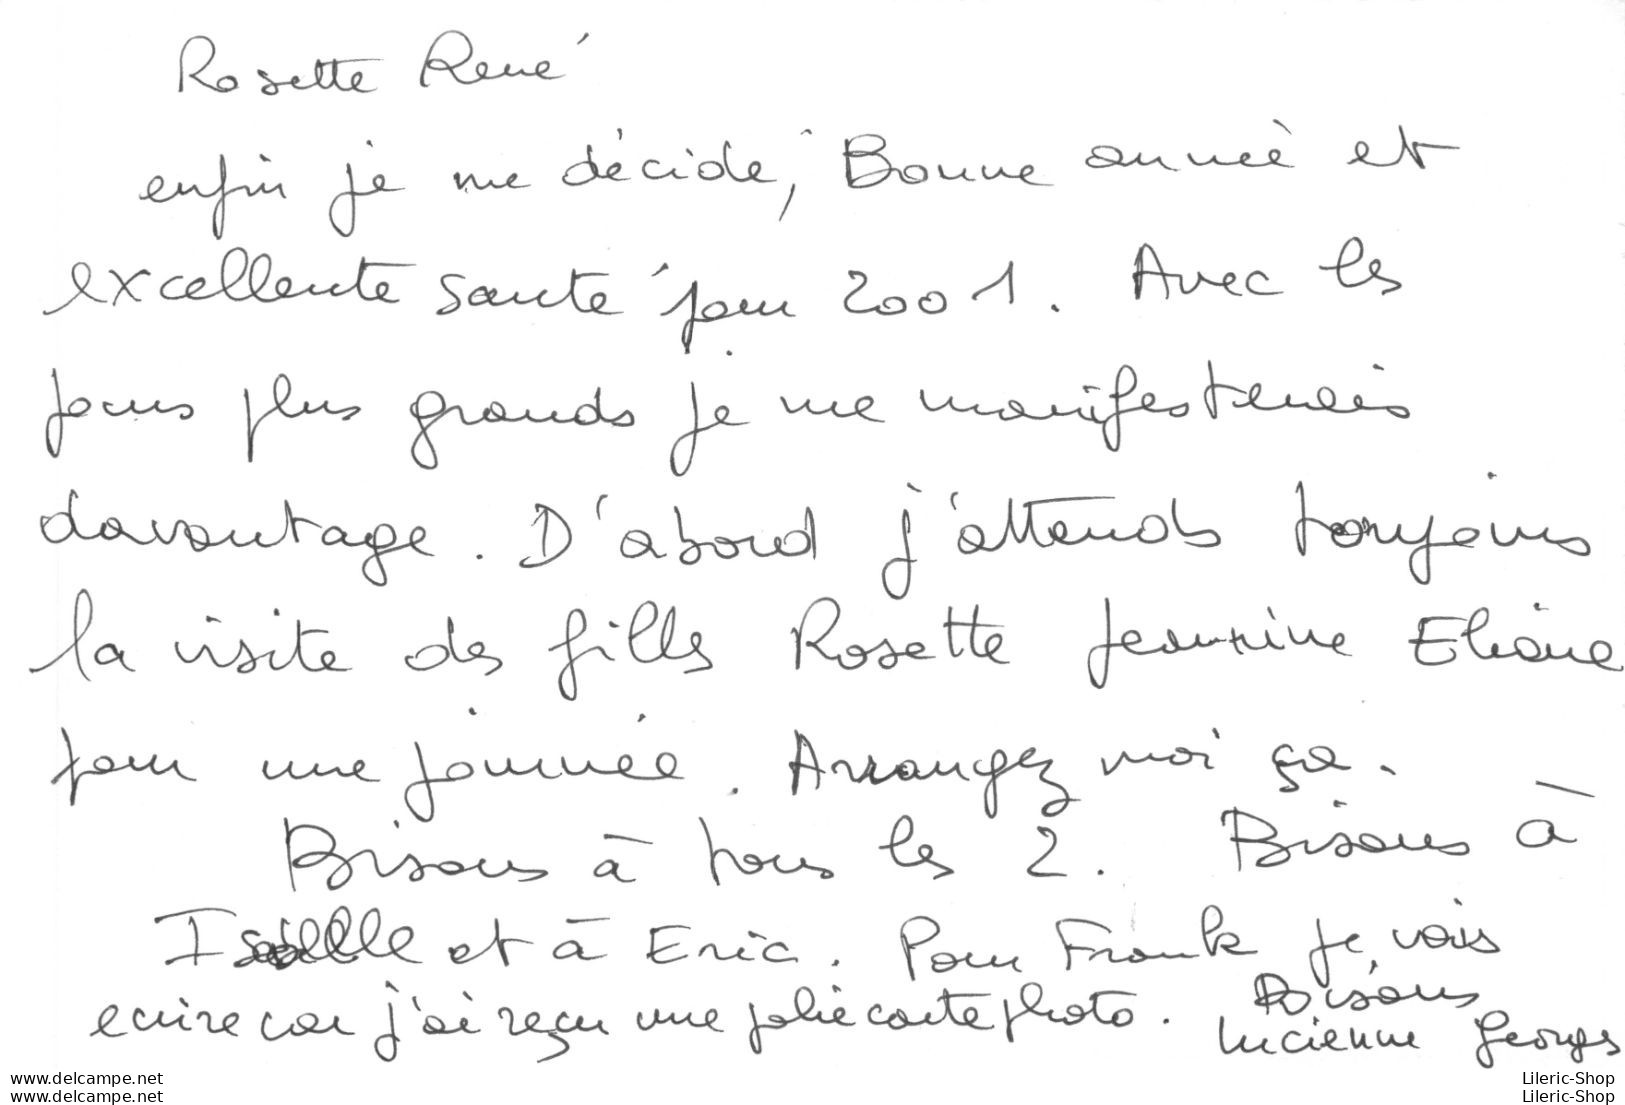 Rosette René
enfin je me décide, Bonne année et
excellente santé pour 2001. Avec les
jours plus grands je me manifesterais
davantage. D'abord j'attends toujours
la visite des filles Rosette Jeannine Eliane
pour une journée. Arrangez moi ça.
Bisous à tous les 2. Bisous à
Isabelle et à Eric. Pour Frank je vais
ecrire car j'ai reçu une jolie carte photo. Bisous
Lucienne Georges
www.delcampe.net
www.delcampe.net
Lileric-Shop
Lileric-Shop